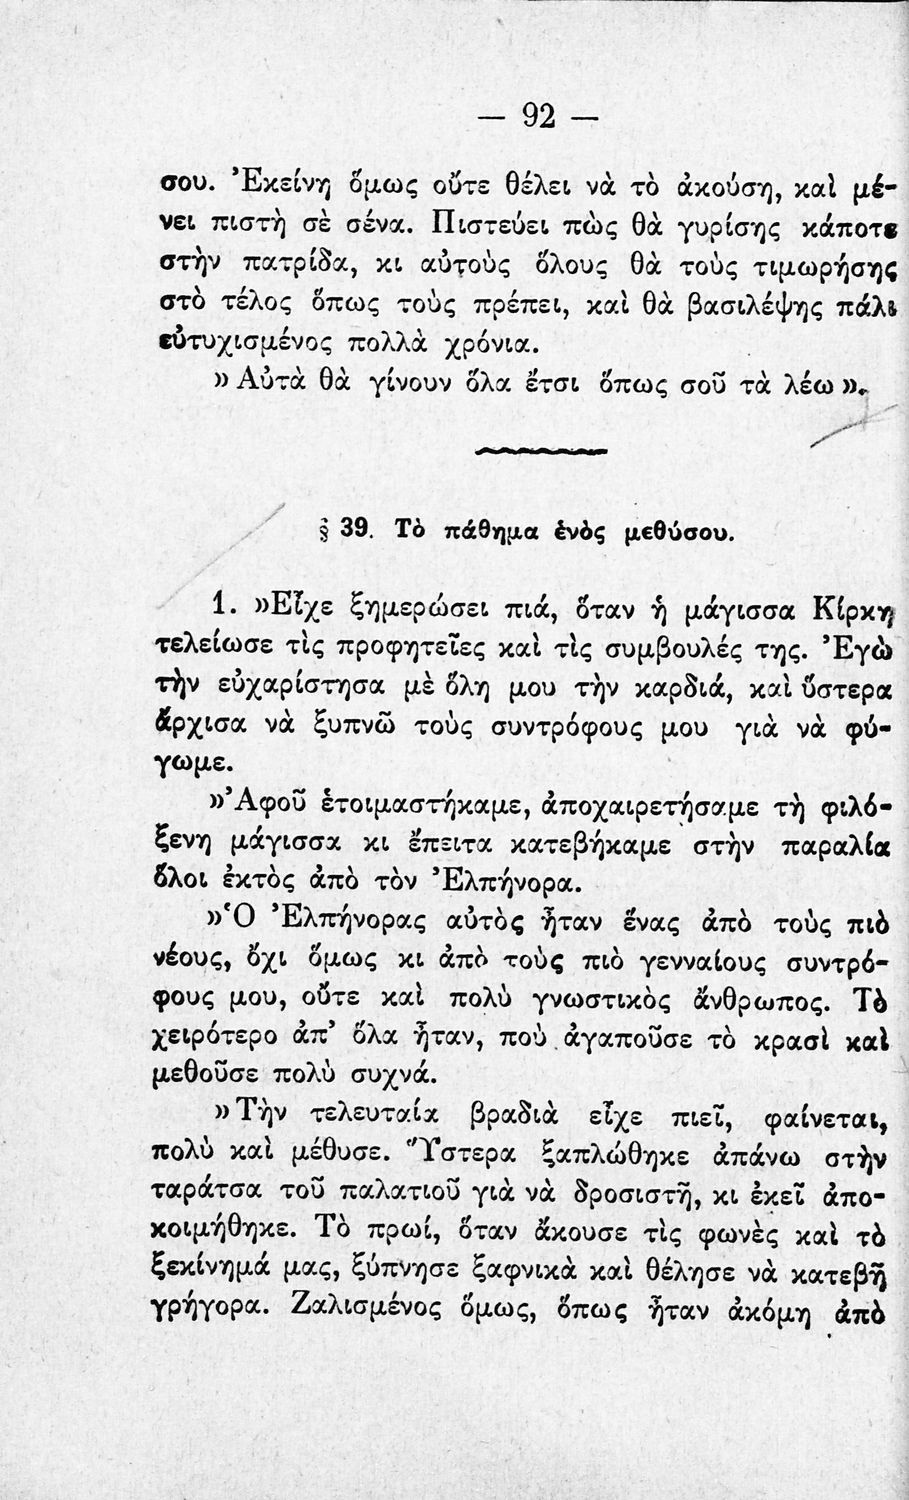 — 92 —
σου. Ἐκείνη ὅμως οὔτε θέλει νὰ τὸ ἀκούση, καὶ μέ-
νει πιστὴ σὲ σένα. Πιστεύει πὼς θὰ γυρίσης κάποτε
στὴν πατρίδα, κι αὐτοὺς ὅλους θὰ τοὺς τιμωρήσης
στὸ τέλος ὅπως τοὺς πρέπει, καὶ θὰ βασιλέψης πάλι
εὐτυχισμένος πολλὰ χρόνια.
» Αὐτὰ θὰ γίνουν ὅλα ἔτσι ὅπως σοῦ τὰ λέω ».
§ 39. Τὸ πάθημα ἑνὸς μεθύσου.
1. »Εἶχε ξημερώσει πιά, ὅταν ἡ μάγισσα Κίρκη
τελείωσε τὶς προφητεῖες καὶ τὶς συμβουλές της. Ἐγὼ
τὴν εὐχαρίστησα μὲ ὅλη μου τὴν καρδιά, καὶ ὕστερα
ἄρχισα νὰ ξυπνῶ τοὺς συντρόφους μου γιὰ νὰ φύ-
γωμε.
»Ἀφοῦ ἑτοιμαστήκαμε, ἀποχαιρετήσαμε τὴ φιλό-
ξενη μάγισσα κι ἔπειτα κατεβήκαμε στὴν παραλία
ὅλοι ἐκτὸς ἀπὸ τὸν Ἐλπήνορα.
»Ὁ Ἐλπήνορας αὐτὸς ἦταν ἕνας ἀπὸ τοὺς πιὸ
νέους, ὄχι ὅμως κι ἀπὸ τοὺς πιὸ γενναίους συντρό-
φους μου, οὔτε καὶ πολὺ γνωστικὸς ἄνθρωπος. Τὸ
χειρότερο ἀπ’ ὅλα ἦταν, ποὺ ἀγαποῦσε τὸ κρασὶ καὶ
μεθοῦσε πολὺ συχνά.
»Τὴν τελευταία βραδιὰ εἶχε πιεῖ, φαίνεται,
πολὺ καὶ μέθυσε. Ὕστερα ξαπλώθηκε ἀπάνω στὴν
ταράτσα τοῦ παλατιοῦ γιὰ νὰ δροσιστῆ, κι ἐκεῖ ἀπο-
κοιμήθηκε. Τὸ πρωί, ὅταν ἄκουσε τὶς φωνὲς καὶ τὸ
ξεκίνημά μας, ξύπνησε ξαφνικὰ καὶ θέλησε νὰ κατεβῆ
γρήγορα. Ζαλισμένος ὅμως, ὅπως ἦταν ἀκόμη ἀπὸ